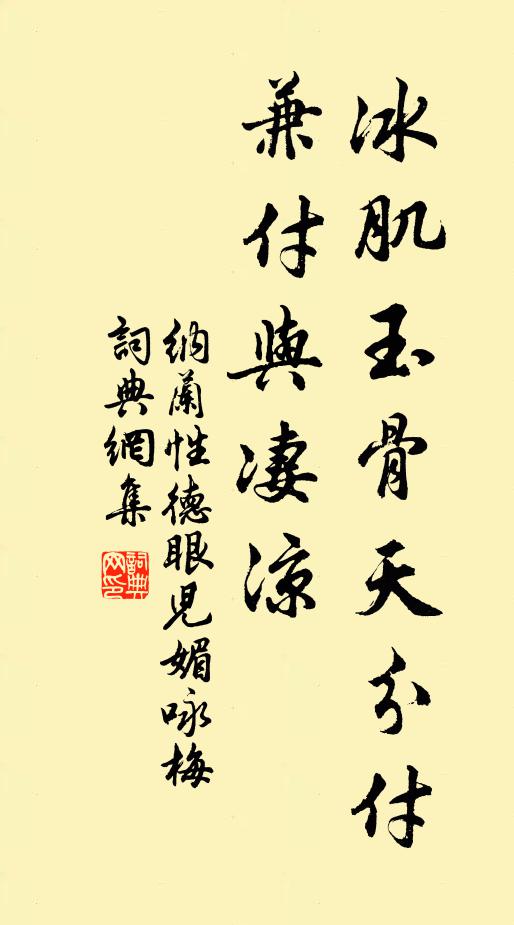 冰肌玉骨天分付
兼付與淒涼
納蘭性德眼兒媚咏梅
詞典網集
詞典网印